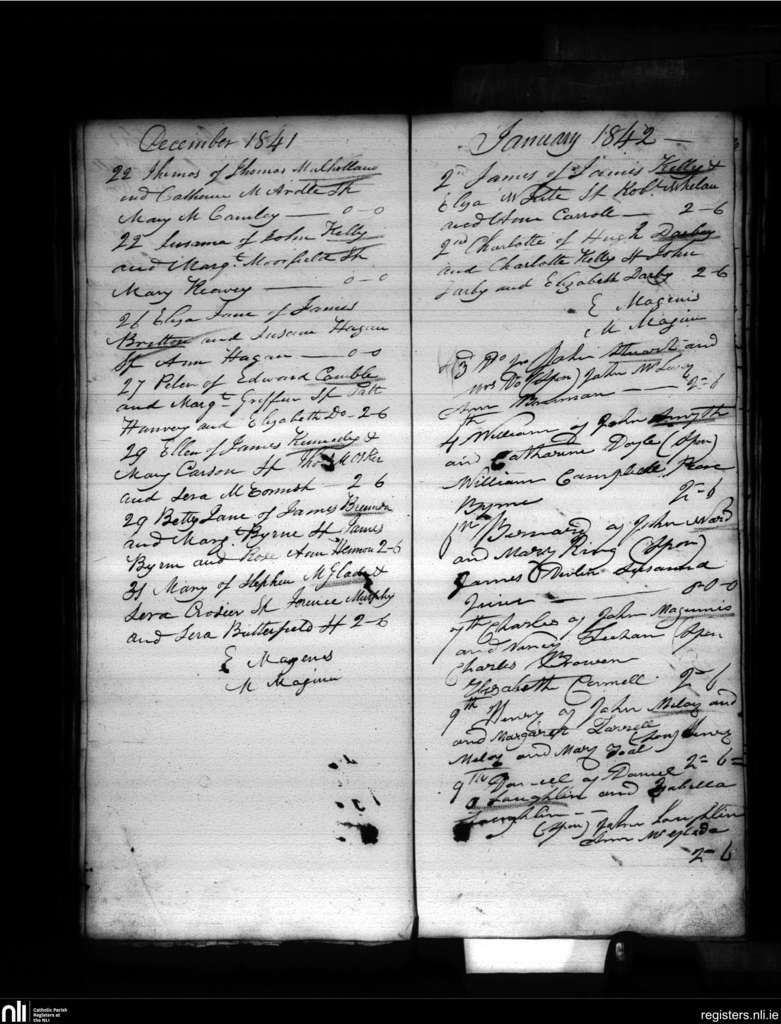 December 1841
22 Thomas of Thomas Mulholland
and Catherine McArdle Sp
Mary McCamley — 0-0
22 Susana of John Kelly
and Margt. Moorfield Sp
Mary Heavey — 0-0
26 Eliza Jane of James
Britton and Susana Hagan
Sp Ann Hagan — 0-0
27 Peter of Edward Camble
and Margt. Griffin Sp Patt
Hanvey and Elizabeth Do- 2-6
29 Ellen of James Kennedy &
Mary Carson Sp Thos
and Sera McCormish — 2 6
29 Betty Jane of James Brennon
and Margt. Byrne Sp James
Byrne and Rose Ann Hennon 2-6
31 Mary of Stephen McGlade &
Sera Crosier Sp Terence Murphy
and Sera Butterfield 2-6
E Magenis
M Maginn
January 1842 —
2nd James of James Kelly &
Eliza White Sp Robt. Whelan
and Ann Carroll — 2-6
2nd Charlotte of Hugh Darby
and Charlotte Kelly Sp John
Darby and Elizabeth Darby 2-6
E Magenis
M Maginn
3d Do John Stuart and
Mrs Do (Spon) John
Ann — 2-6
4th William of John Smyth
and Catharine Doyle (Spon)
William Campbell
Byrne 2-6
Bernard of John Ward
and Mary King (Spon)
James Devlin Susanna
0-0-0
7th Charles of John Magennis
and Nancy Feehan (Spon
Charles Bowen
Elizabeth Connell 2-6
9th Henry of John Meloy and
and Margaret Farrell
(Spon) Henry
Meloy and Mary Toal
9th of Daniel 2-6
Laughlin and Isabella
Loughlin —
(Spon) John Laughlin
Ann McGlade
2-6
nli
Catholic Parish
Registers at
the NLI
registers.nli.ie